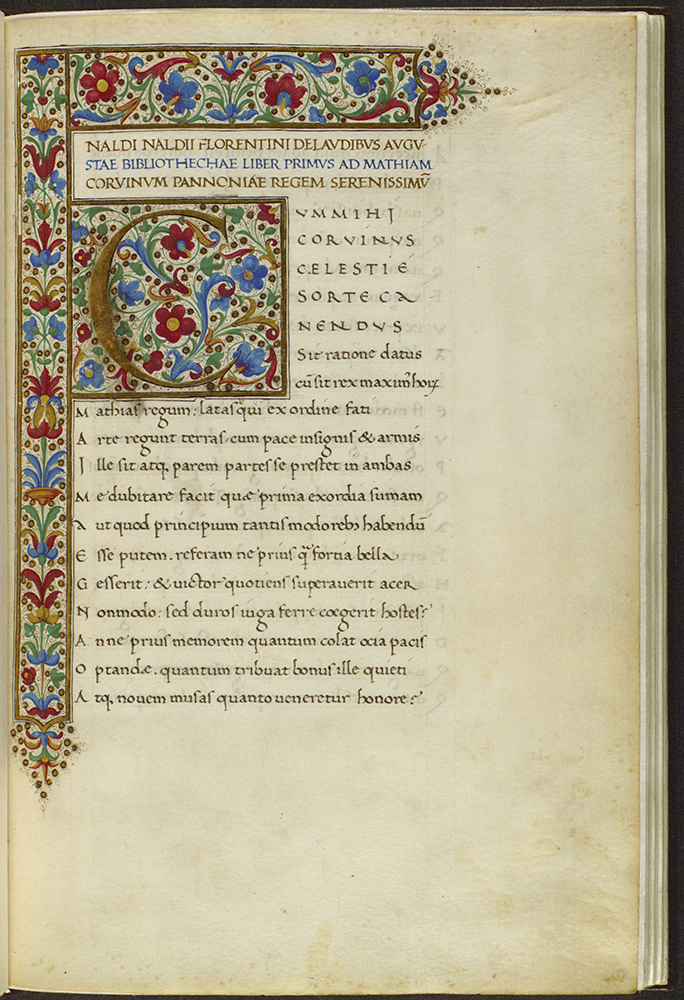 NALDI NALDII FLORENTINI DE LAVDIBVS AVGV-
STAE BIBLIOTHECHAE LIBER PRIMVS AD MATHIAM
CORVINVM PANNONIAE REGEM SERENISSIMV̄
CVM MIHI
CORVINVS
CELESTI E
SORTE CA
NENDVS
Sit ratione datus
cū sit rex maxim hoīꝝ
Mathias regum: latas qui ex ordine fati
Arte regunt terras, cum pace insignis & armis
Ille sit atq. parem partes se prestet in ambas
Me dubitare facit quae prima exordia sumam
Aut quod principium tantis modo reb; habendū
Esse putem. referam ne prius q̄ fortia bella
Gesserit: & uictor quotiens superauerit acer
Non modo: sed duros iuga ferre coegerit hostes?
Anne prius memorem quantum colat ocia pacis
Optandae. quantum tribuat bonus ille quieti
Atq. nouem musas quanto ueneretur honore?